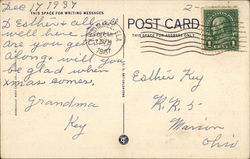 Dec 17 1937
THIS SPACE FOR WRITING MESSAGES
POST CARD
THIS SPACE FOR ADDRESS ONLY
D Esther & all all
well here how
are you getting
along. will you
be glad when
xmas comes.
Grandma
Key
Esther Key
R.R. 5
Marion
Ohio